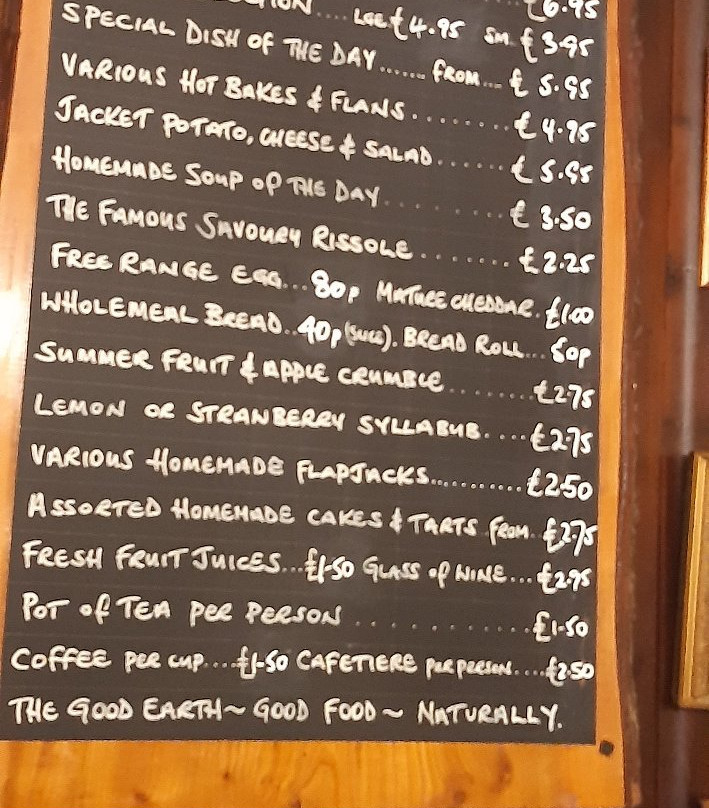 LGE £4.95 SM £3.95 £6.95
SPECIAL DISH OF THE DAY....... FROM... £5.95
VARIOUS HOT BAKES & FLANS........ £4.95
JACKET POTATO, CHEESE & SALAD...... £5.95
HOMEMADE SOUP OF THE DAY......... £3.50
THE FAMOUS SAVOURY RISSOLE....... £2.25
FREE RANGE EGG... 80p MATURE CHEDDAR. £1.00
WHOLEMEAL BREAD..40p (SLICE). BREAD ROLL... 50p
SUMMER FRUIT & APPLE CRUMBLE......... £2.75
LEMON OR STRAWBERRY SYLLABUB..... £2.75
VARIOUS HOMEMADE FLAPJACKS............ £2.50
ASSORTED HOMEMADE CAKES & TARTS FROM. £2.75
FRESH FRUIT JUICES...£1-50 GLASS OF WINE... £2.95
POT OF TEA PER PERSON............ £1-50
COFFEE PER CUP....£1-50 CAFETIERE PER PERSON.... £2.50
THE GOOD EARTH~ GOOD FOOD~ NATURALLY.